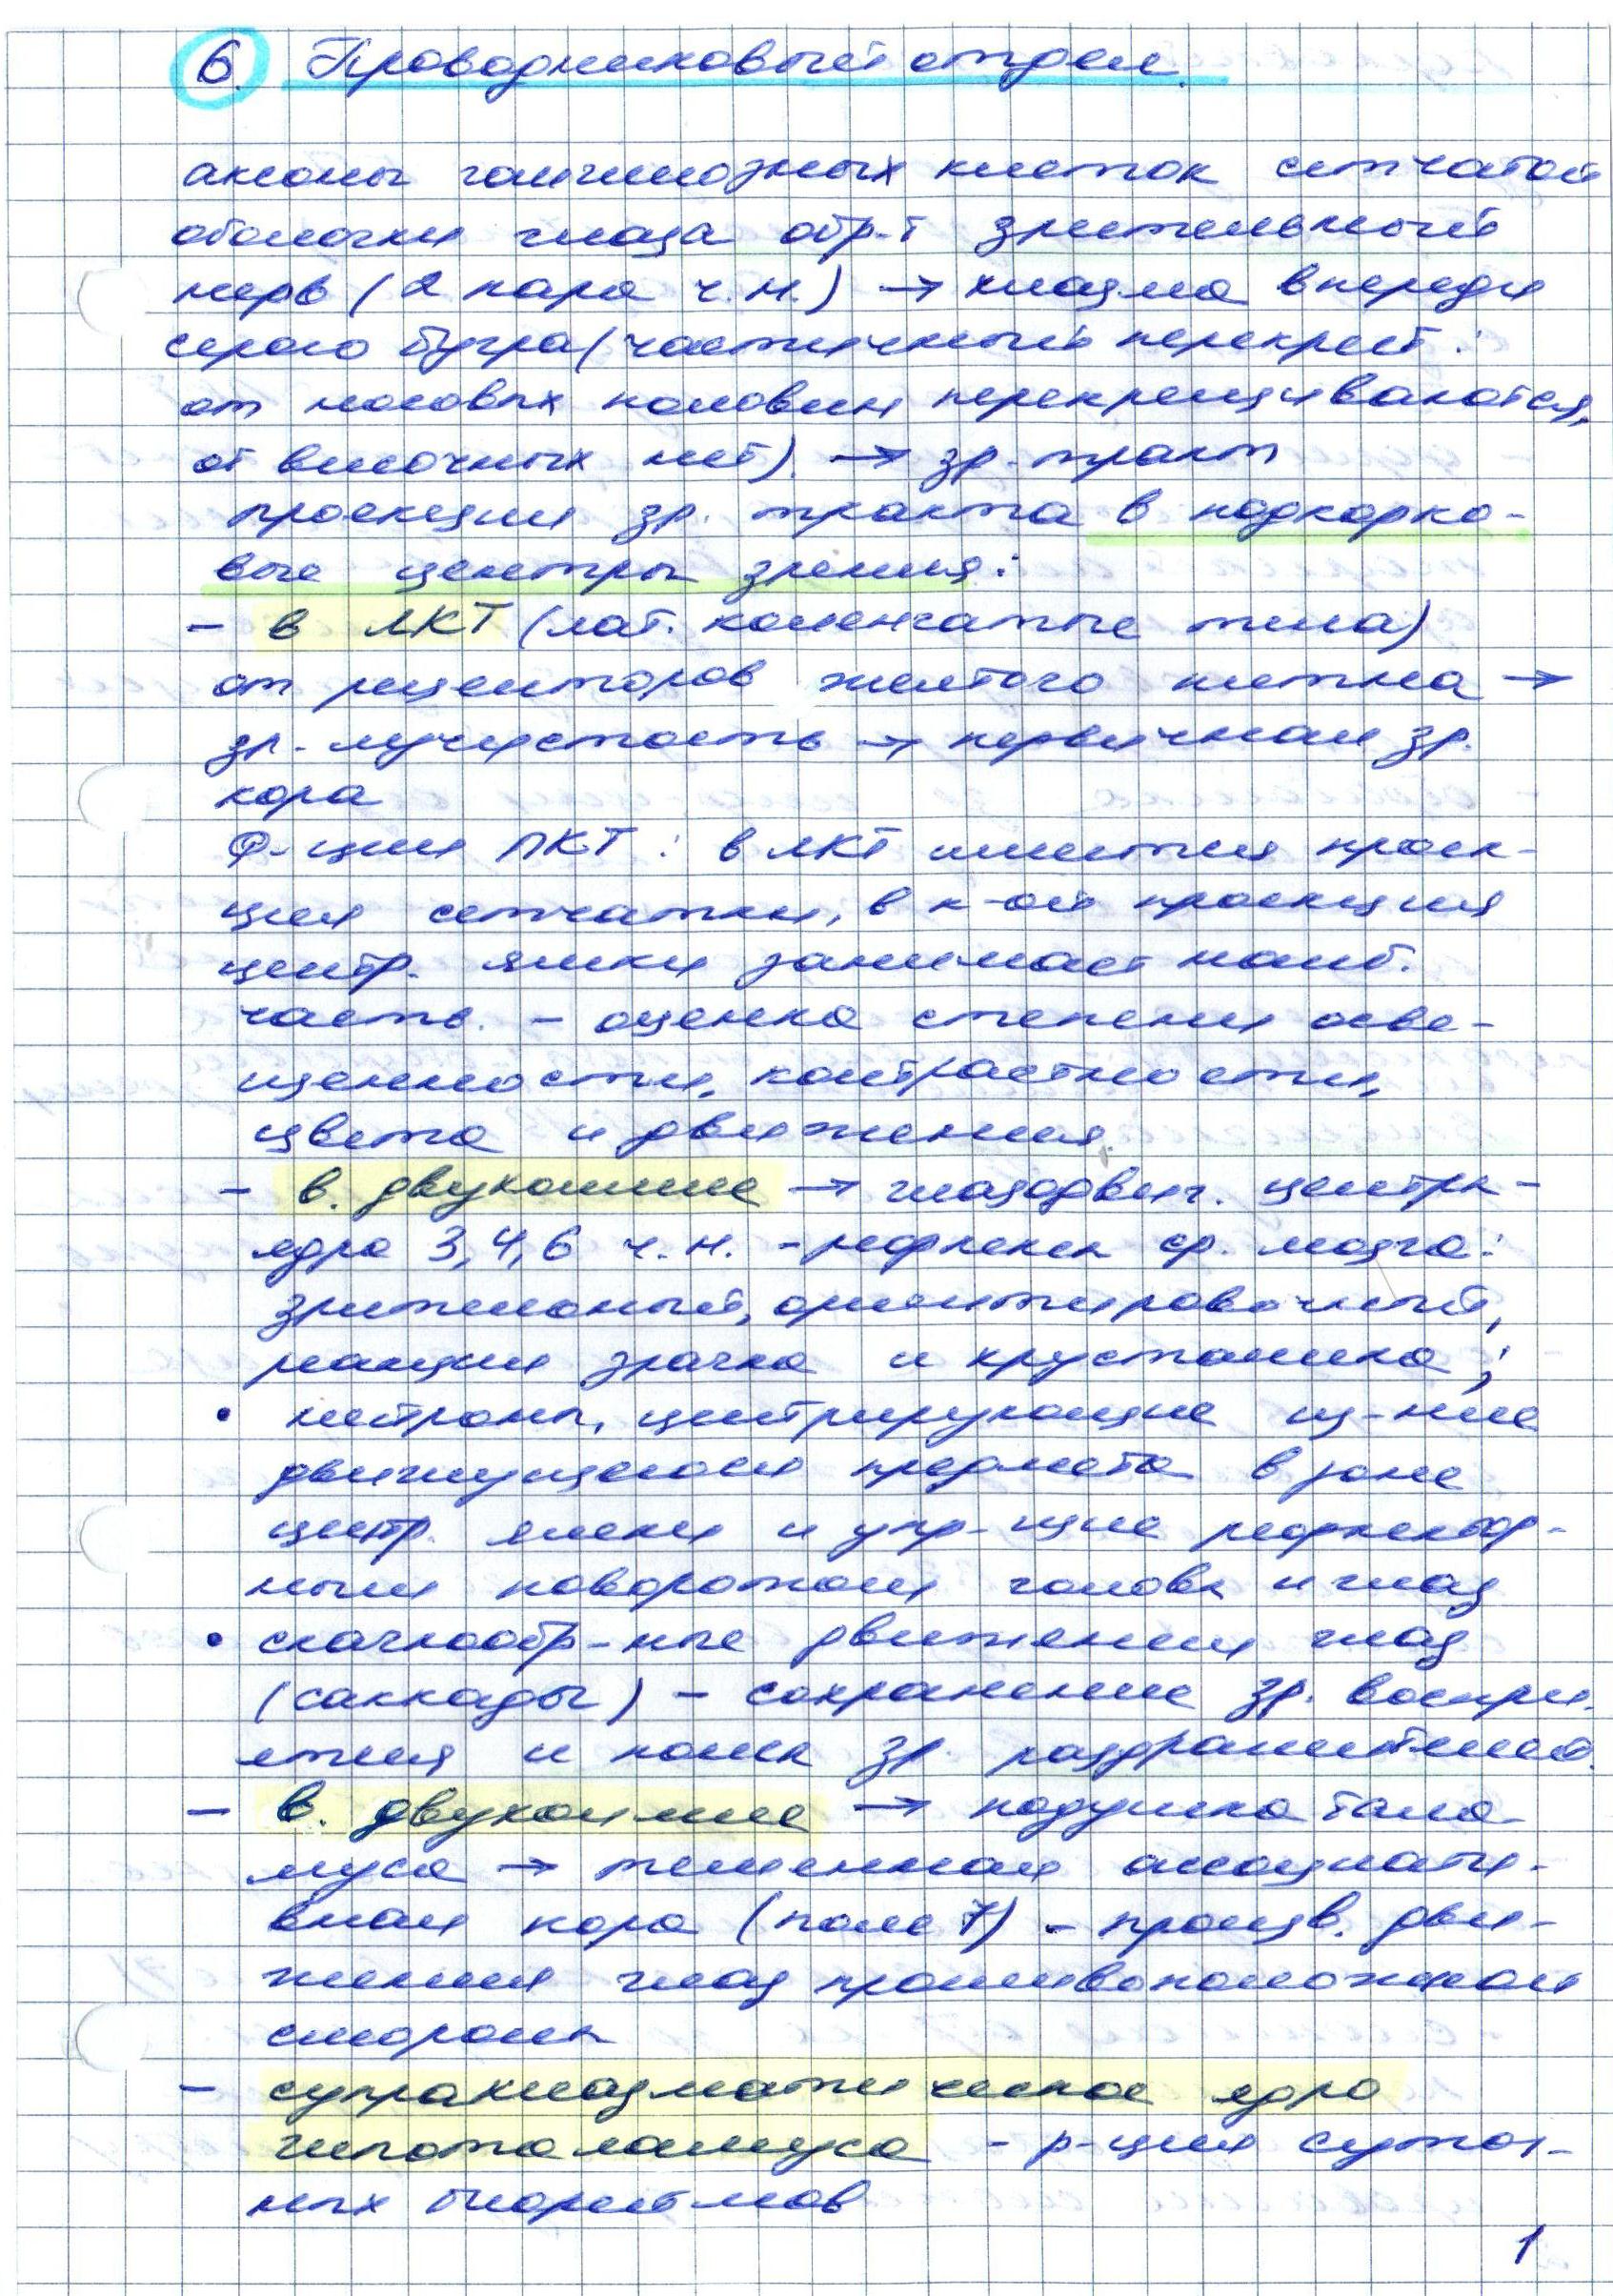 6. Проводниковый отдел.
аксоны ганглиозных клеток сетчатой
оболочки глаза обр-т зрительный
нерв (2 пара ч.н.) → хиазма впереди
серого бугра (частичный перекрест:
от носовых половин перекрещиваются,
от височных нет). → зр. тракт
проекции зр. тракта в подкорко-
вые центры зрения:
- в ЛКТ (лат. коленчатые тела)
от рецепторов желтого пятна →
зр. лучистость → первичная зр.
кора
Ф-ции ЛКТ: в ЛКТ имеется проек-
ция сетчатки, в к-ой проекция
центр. ямки занимает наиб.
часть. - оценка степени осве-
щенности, контрастности,
цвета и движения.
- в. двухолмие → глазодвиг. центры -
ядра 3, 4, 6 ч.н. - рефлексы ср. мозга:
зрительный, ориентировочный,
реакции зрачка и хрусталика;
• нейроны, центрирующие из-ние
движущегося предмета в зоне
центр. ямки и упр-щие рефлектор-
ным поворотом головы и глаз
• скачкообр-ные движения глаз
(саккады) - сохранение зр. воспри-
ятия и поиск зр. раздражителей.
- в. двухолмие → подушка тала-
муса → теменная ассоциати-
вная кора (поле 7) - произв. дви-
жения глаз противоположной
стороны
- супрахиазматическое ядро
гипоталамуса - р-ция суточ-
ных биоритмов
1